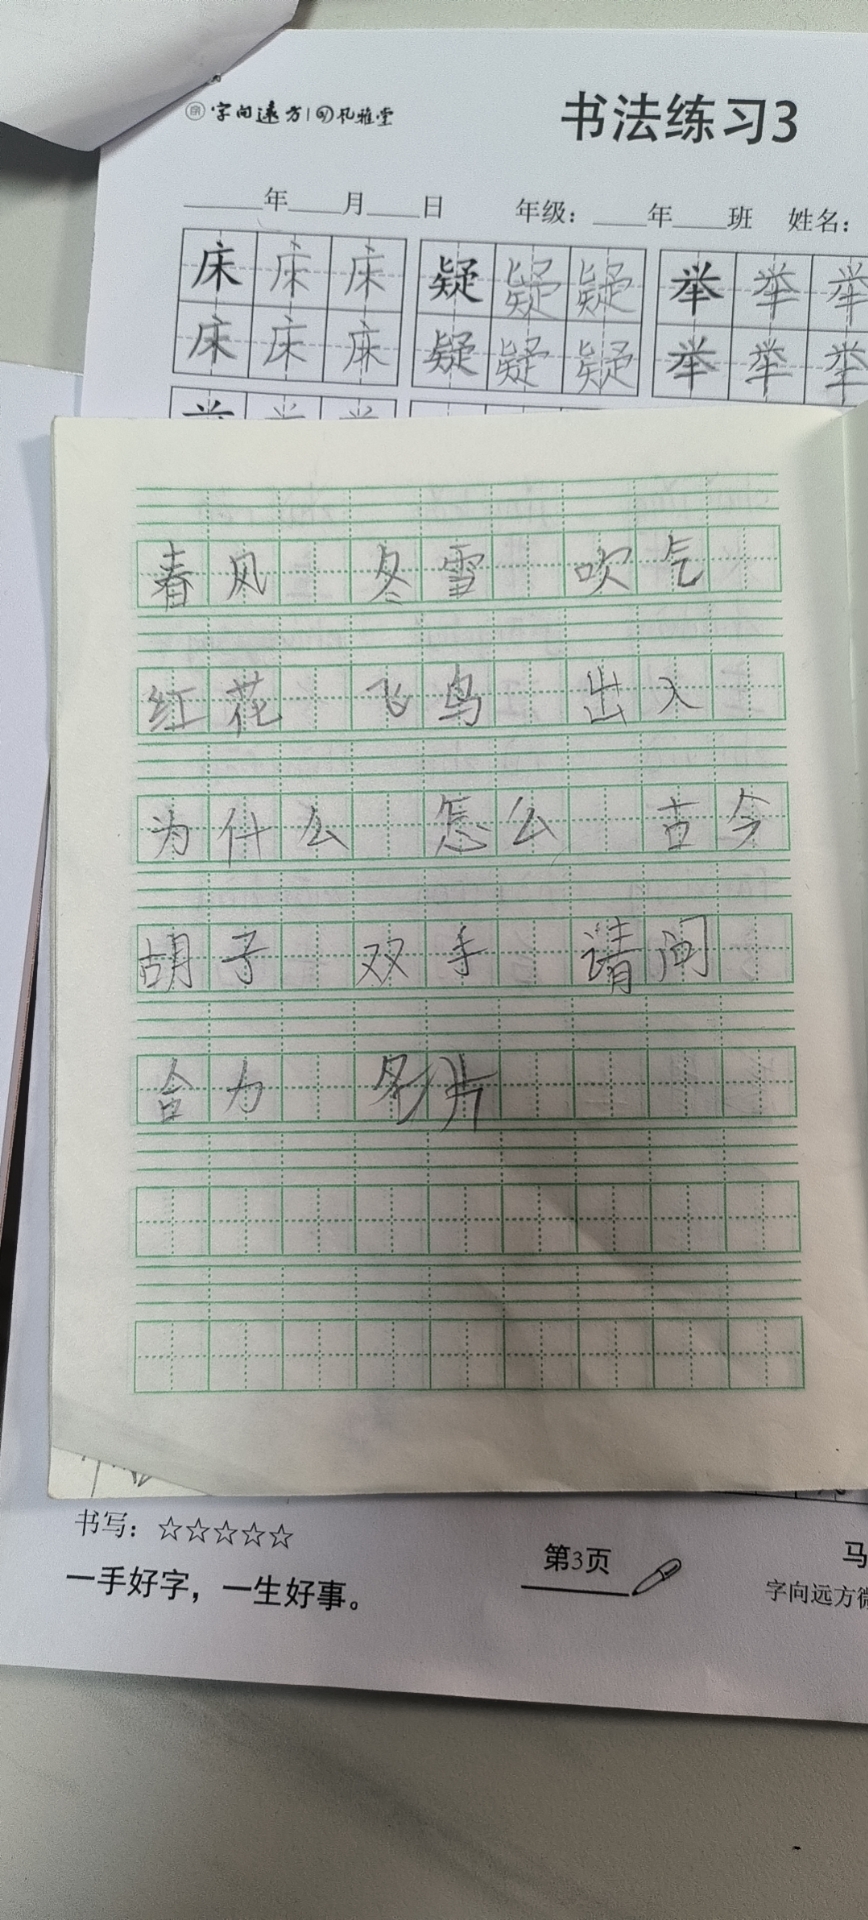 字向远方 孔雅堂
书法练习3
____年____月____日 年级：____年____班 姓名：
床 床 床 疑 疑 疑 举 举 举
床 床 床 疑 疑 疑 举 举 举
春风 冬雪 吹气
红花 飞鸟 出入
为什么 怎么 古今
胡子 双手 请问
合力 名片
书写：☆☆☆☆☆
一手好字，一生好事。
第3页
马
字向远方微